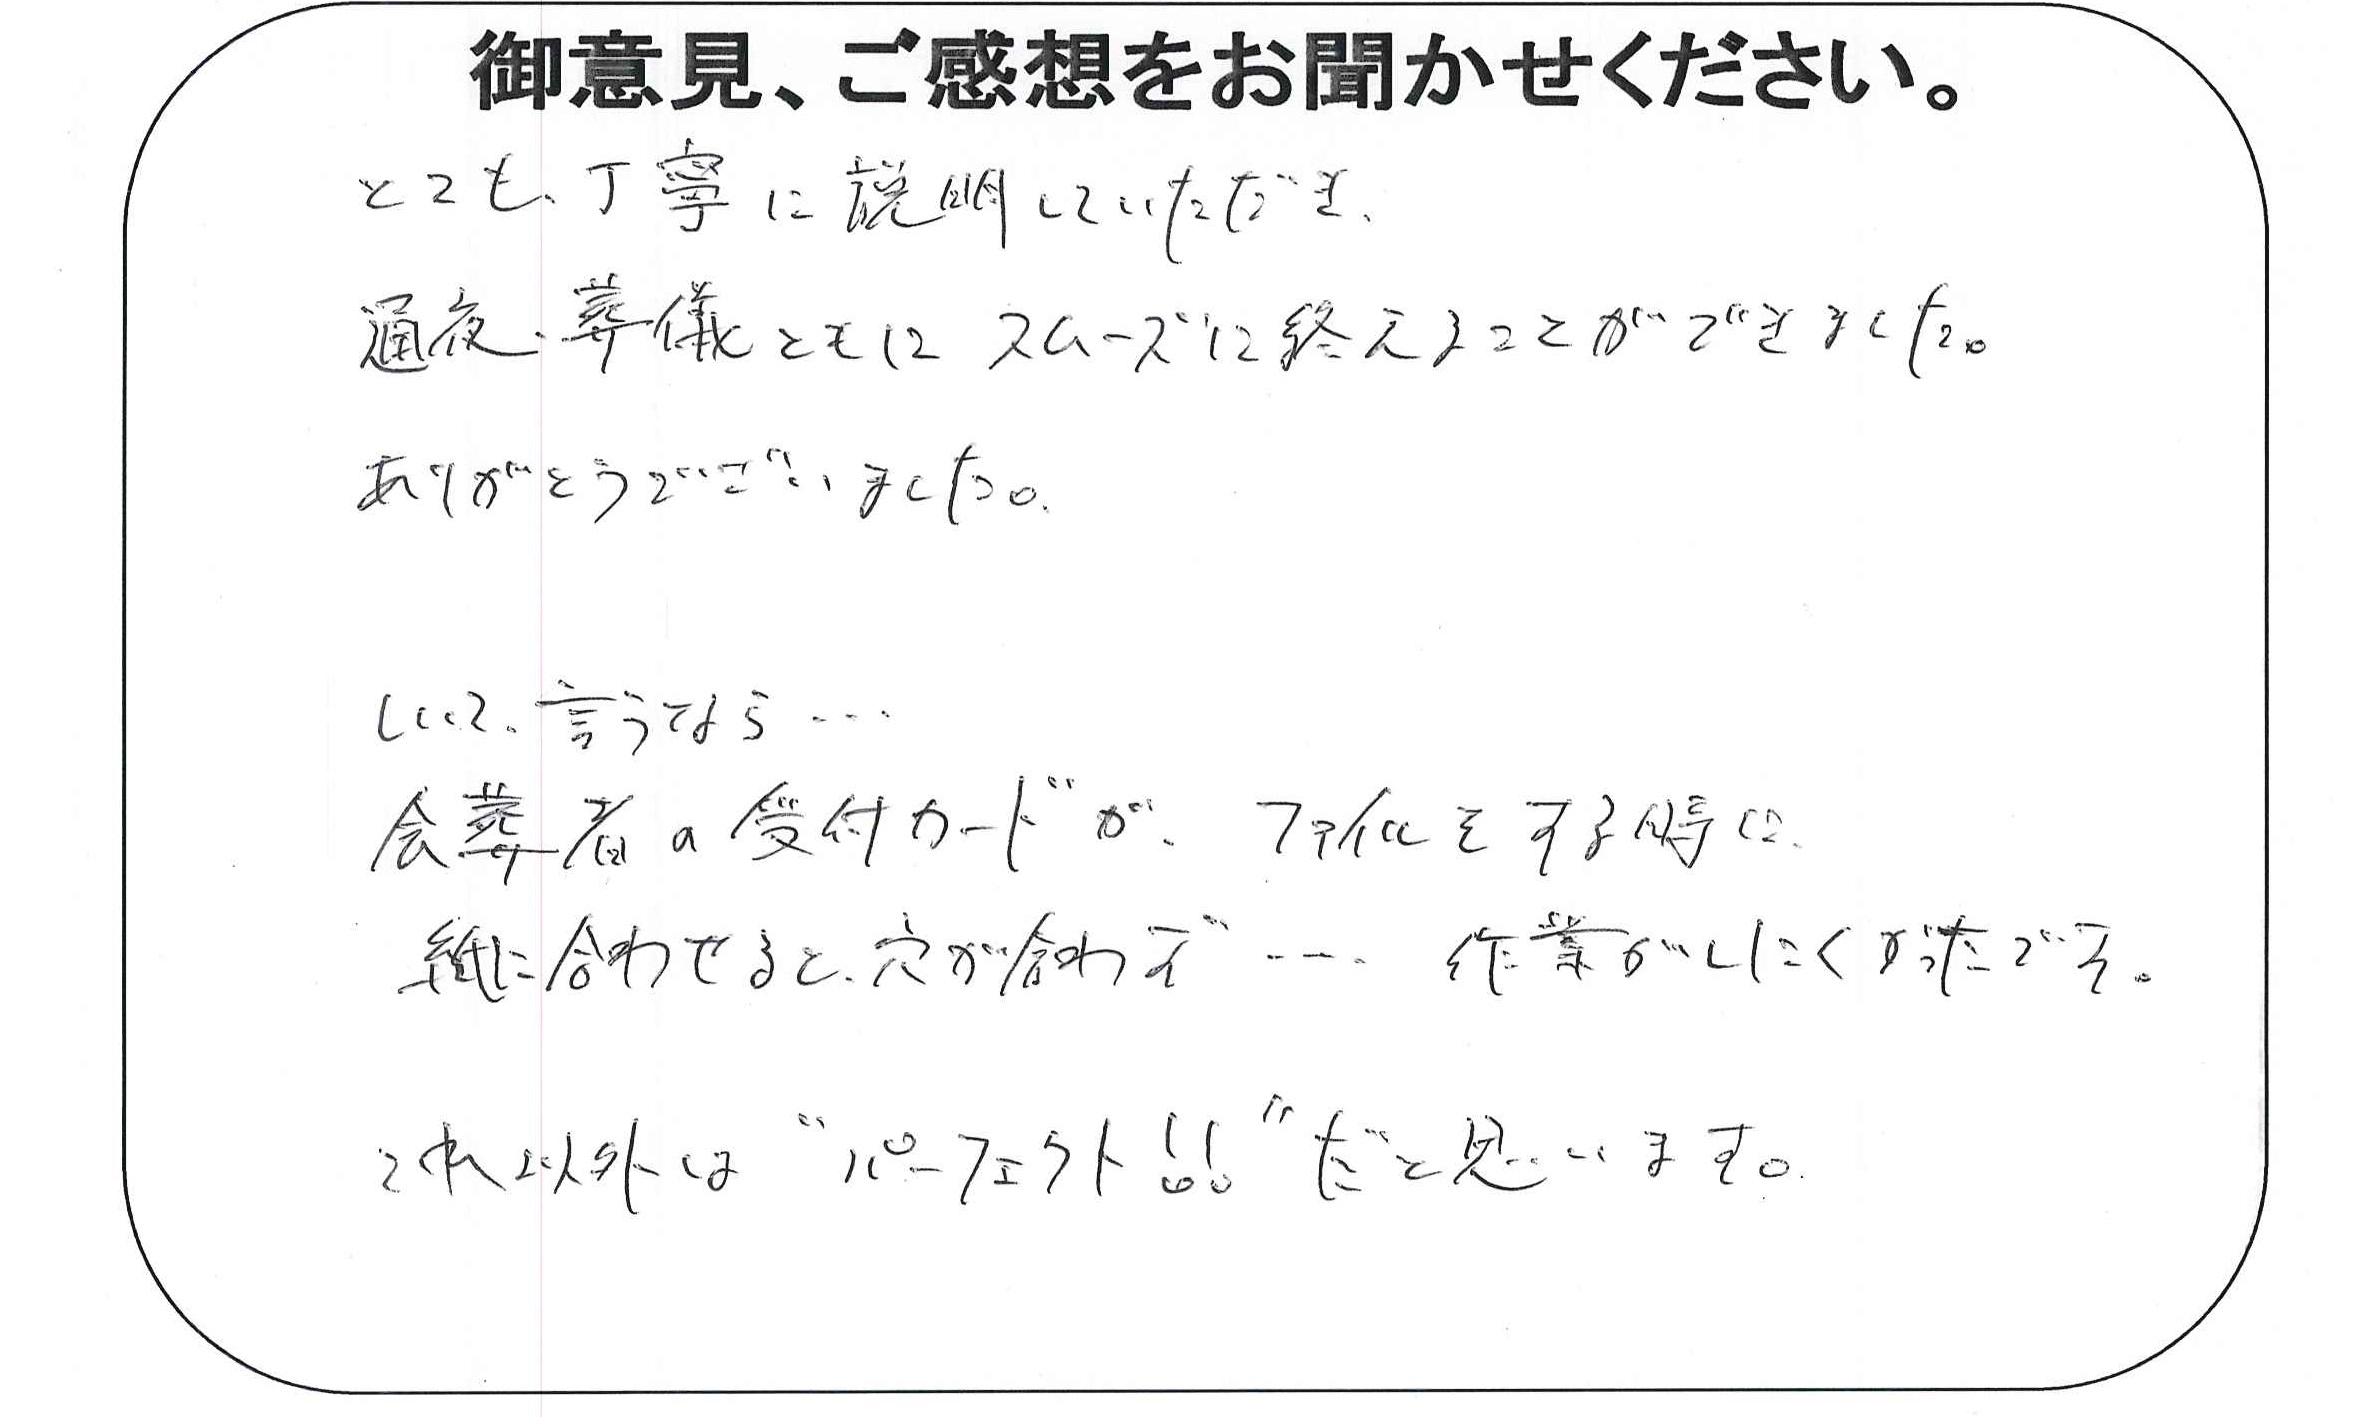 御意見、ご感想をお聞かせください。
とても、丁寧に説明していただき、
通夜、葬儀ともに スムーズに終えることができました。
ありがとうございました。
しいて、言うなら…
会葬者の受付カードが、ファイルをする時に、
紙に合わせると、穴が合わず…. 作業がしにくかったです。
それ以外は“パーフェクト!!”だと思います。